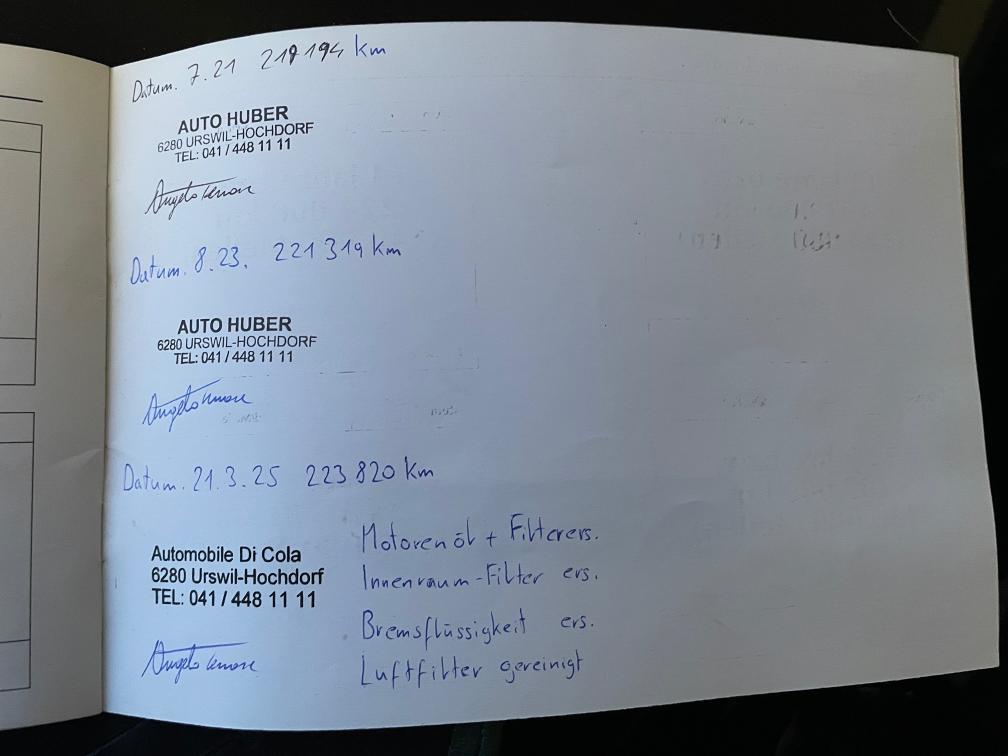 Datum. 7.21 219194 km
AUTO HUBER
6280 URSWIL-HOCHDORF
TEL: 041 / 448 11 11
Datum. 8.23. 221 319 km
AUTO HUBER
6280 URSWIL-HOCHDORF
TEL: 041 / 448 11 11
Datum. 21.3.25 223 820 km
Automobile Di Cola
6280 Urswil-Hochdorf
TEL: 041 / 448 11 11
Motorenöl + Filterers.
Innenraum-Filter ers.
Bremsflüssigkeit ers.
Luftfilter gereinigt